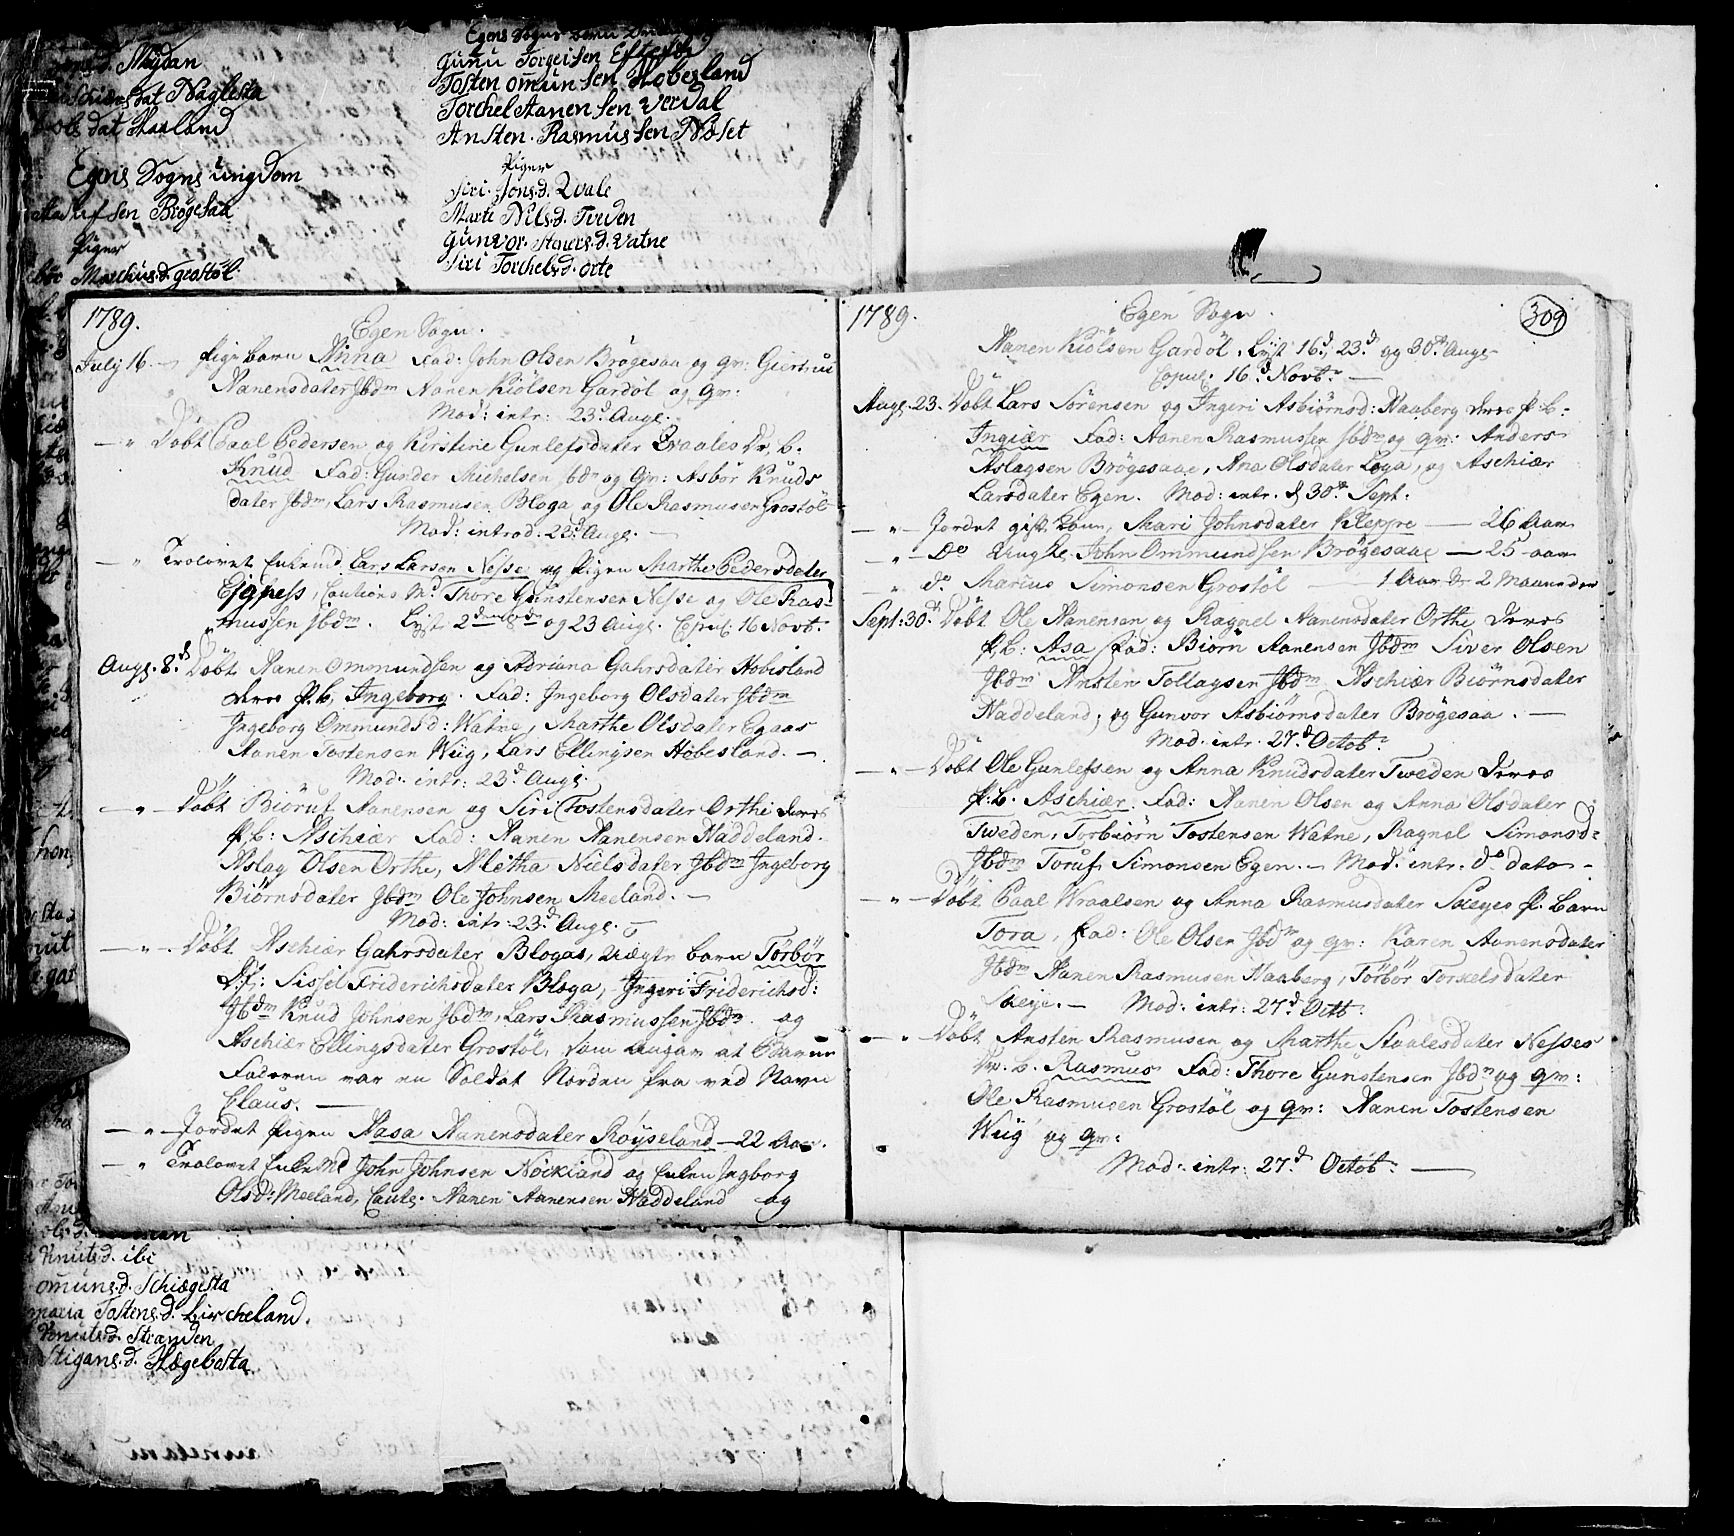 Nÿdan
dat Naglesta
dat Haaland
Egens Sogns ungdom
sen Brøgesaa
Piger
Marchus.d. geastøl
Egens Sogns
Gunu Torgeisen
Tosten omunsen Hobesland
Torchel Aanensen Verdal
Ansten. Rasmussen Noset
Piger
Siri. Jons.d. Qvale
Marte Nils.d. Tveden
Gunvor. d. vatne
Siri Torchels.d. orte
1789.
Egen Sogn.
July 16 – Pige barn Anna Fad: John Olsen Brøgesaa og qv: Giertrui
Aanensdater Jbdm Aanen Kiølsen Gardøl og qv:
Mod: intr: 23d Augs.
— " Døbt Paal Pedersen og Kirstine Gunlefsdater Qvaales Dr. b.
Knud Fad: Gunder Michelsen Jbdm og Qv: Asbør Knuds
dater Jbdm, Lars Rasmusen Bloga og Ole Rasmusen Grostøl
Mod: introd. 23d Augs. —
— " Trolovet Enkemd Lars Larsen Nesse og Pigen Marthe Pedersdater
Cautions Md Thore Gunstensen Nesse og Ole Ras-
mussen Jbdm. Lyst 2den og 23 Augs. Copul. 16 Novbr
Augs. 8d Døbt Aanen Ommundsen og Adriana Gahrsdater Hobisland
deres P.b. Ingeborg. Fad: Ingeborg Olsdater Jbdm
Ingeborg Ommundsd: Watne, Marthe Olsdater Egaas
Aanen Tostensen Wiig, Lars Ellingsen Høbesland. —
Mod: intr: 23d Augs.
— " — Døbt Biøruf Aanensen og Siri Tostensdater Orthe deres
P.b: Aschiær Fad: Aanen Aanensen Haddeland.
Aslag Olsen Orthe, Metha Nielsdater Jbdm Ingeborg
Biørnsdater Jbdm Ole Johnsen Meeland. —
Mod: intr: 23d Augs. —
— " — Døbt Aschiær Gahrsdater Blogas, uægte barn Tørbør
Sissel Friderichsdater Bloga, Ingeri Friderichsd:
Jbdm Knud Johnsen Jbdm, Lars Rasmussen Jbdm og
Aschiær Ellingsdater Grostøl, Som angav at Barne
Faderen var en Soldat Norden fra ved Navn
Claus. —
— " — Jordet Pigen Aasa Aanensdater Røyseland — 22 Aar.
— " Trolovet Enkemd John Johnsen Nøckland og Enken Ingborg
Olsd: Meeland, Cauts. Aanen Aanensen Haddeland og
1789.
Egen Sogn.
309
Aanen Kiølsen Gardøl. Lyst 16d, 23d og 30d Augs
Copul. 16d Novbr —
Augs. 23. Døbt Lars Sørensen og Ingeri Asbiørnsd: Haaberg deres P.b:
Ingiær Fad: Aanen Rasmussen Jbdm og qv: Anders
Aslagsen Brøgesaae, Ana Olsdater Loga, og Aschiær
Larsdater Egen. Mod: intr. d 30d Sept:
— " — Jordet gift Kone, Mari Johnsdater Kleppe — 26 Aar
— " — Do Ungke John Ommundsen Brøgesaae — 25 – aar
— " do Marius Simonsen Grostøl — 1 Aar 2 Maaneder
Sept: 30d Døbt Ole Aanensen og Ragnel Aanensdater Orthe Deres
P.b: Asa Fad: Biørn Aanensen Jbdm Siver Olsen
Jbdm Ansten Tollagsen Jbdm Aschiær Biørnsdater
Haddeland, og Gunvor Asbiørnsdater Brøgesaa. —
Mod: intr. 27d Octob:
— " — Døbt Ole Gunlefsen og Anna Knudsdater Tweden Deres
P.b. Aschiær. Fad: Aanen Olsen og Anna Olsdater
Tweden, Torbiørn Tostensen Watne, Ragnel Simonsd:
Jbdm Toruf Simonsen Egen. – Mod. intr. do dato –
— " — Døbt Paal Wraalsen og Anna Rasmusdater P. barn
Tora, Fad: Ole Olsen Jbdm og qv: Karen Aanensdater
Jbdm Aanen Rasmusen Haaberg, Tørbør Torkelsdater
– Mod: intr: 27d Octb.
— " — Døbt Ansten Rasmusen og Marthe Staalesdater Nesses
Dr. b. Rasmus Fad: Thore Gunstensen Jbdm og qv:
Ole Rasmusen Grostøl og qv: Aanen Tostensen
Wiig og qv:
Mod: intr: 27d Octob: —
Knuts.d. ibi
omuns.d. Schiægesta
maria Tostens.d. Lircheland.
Knuts.d. Stranden
Stigans.d. Hægebosta